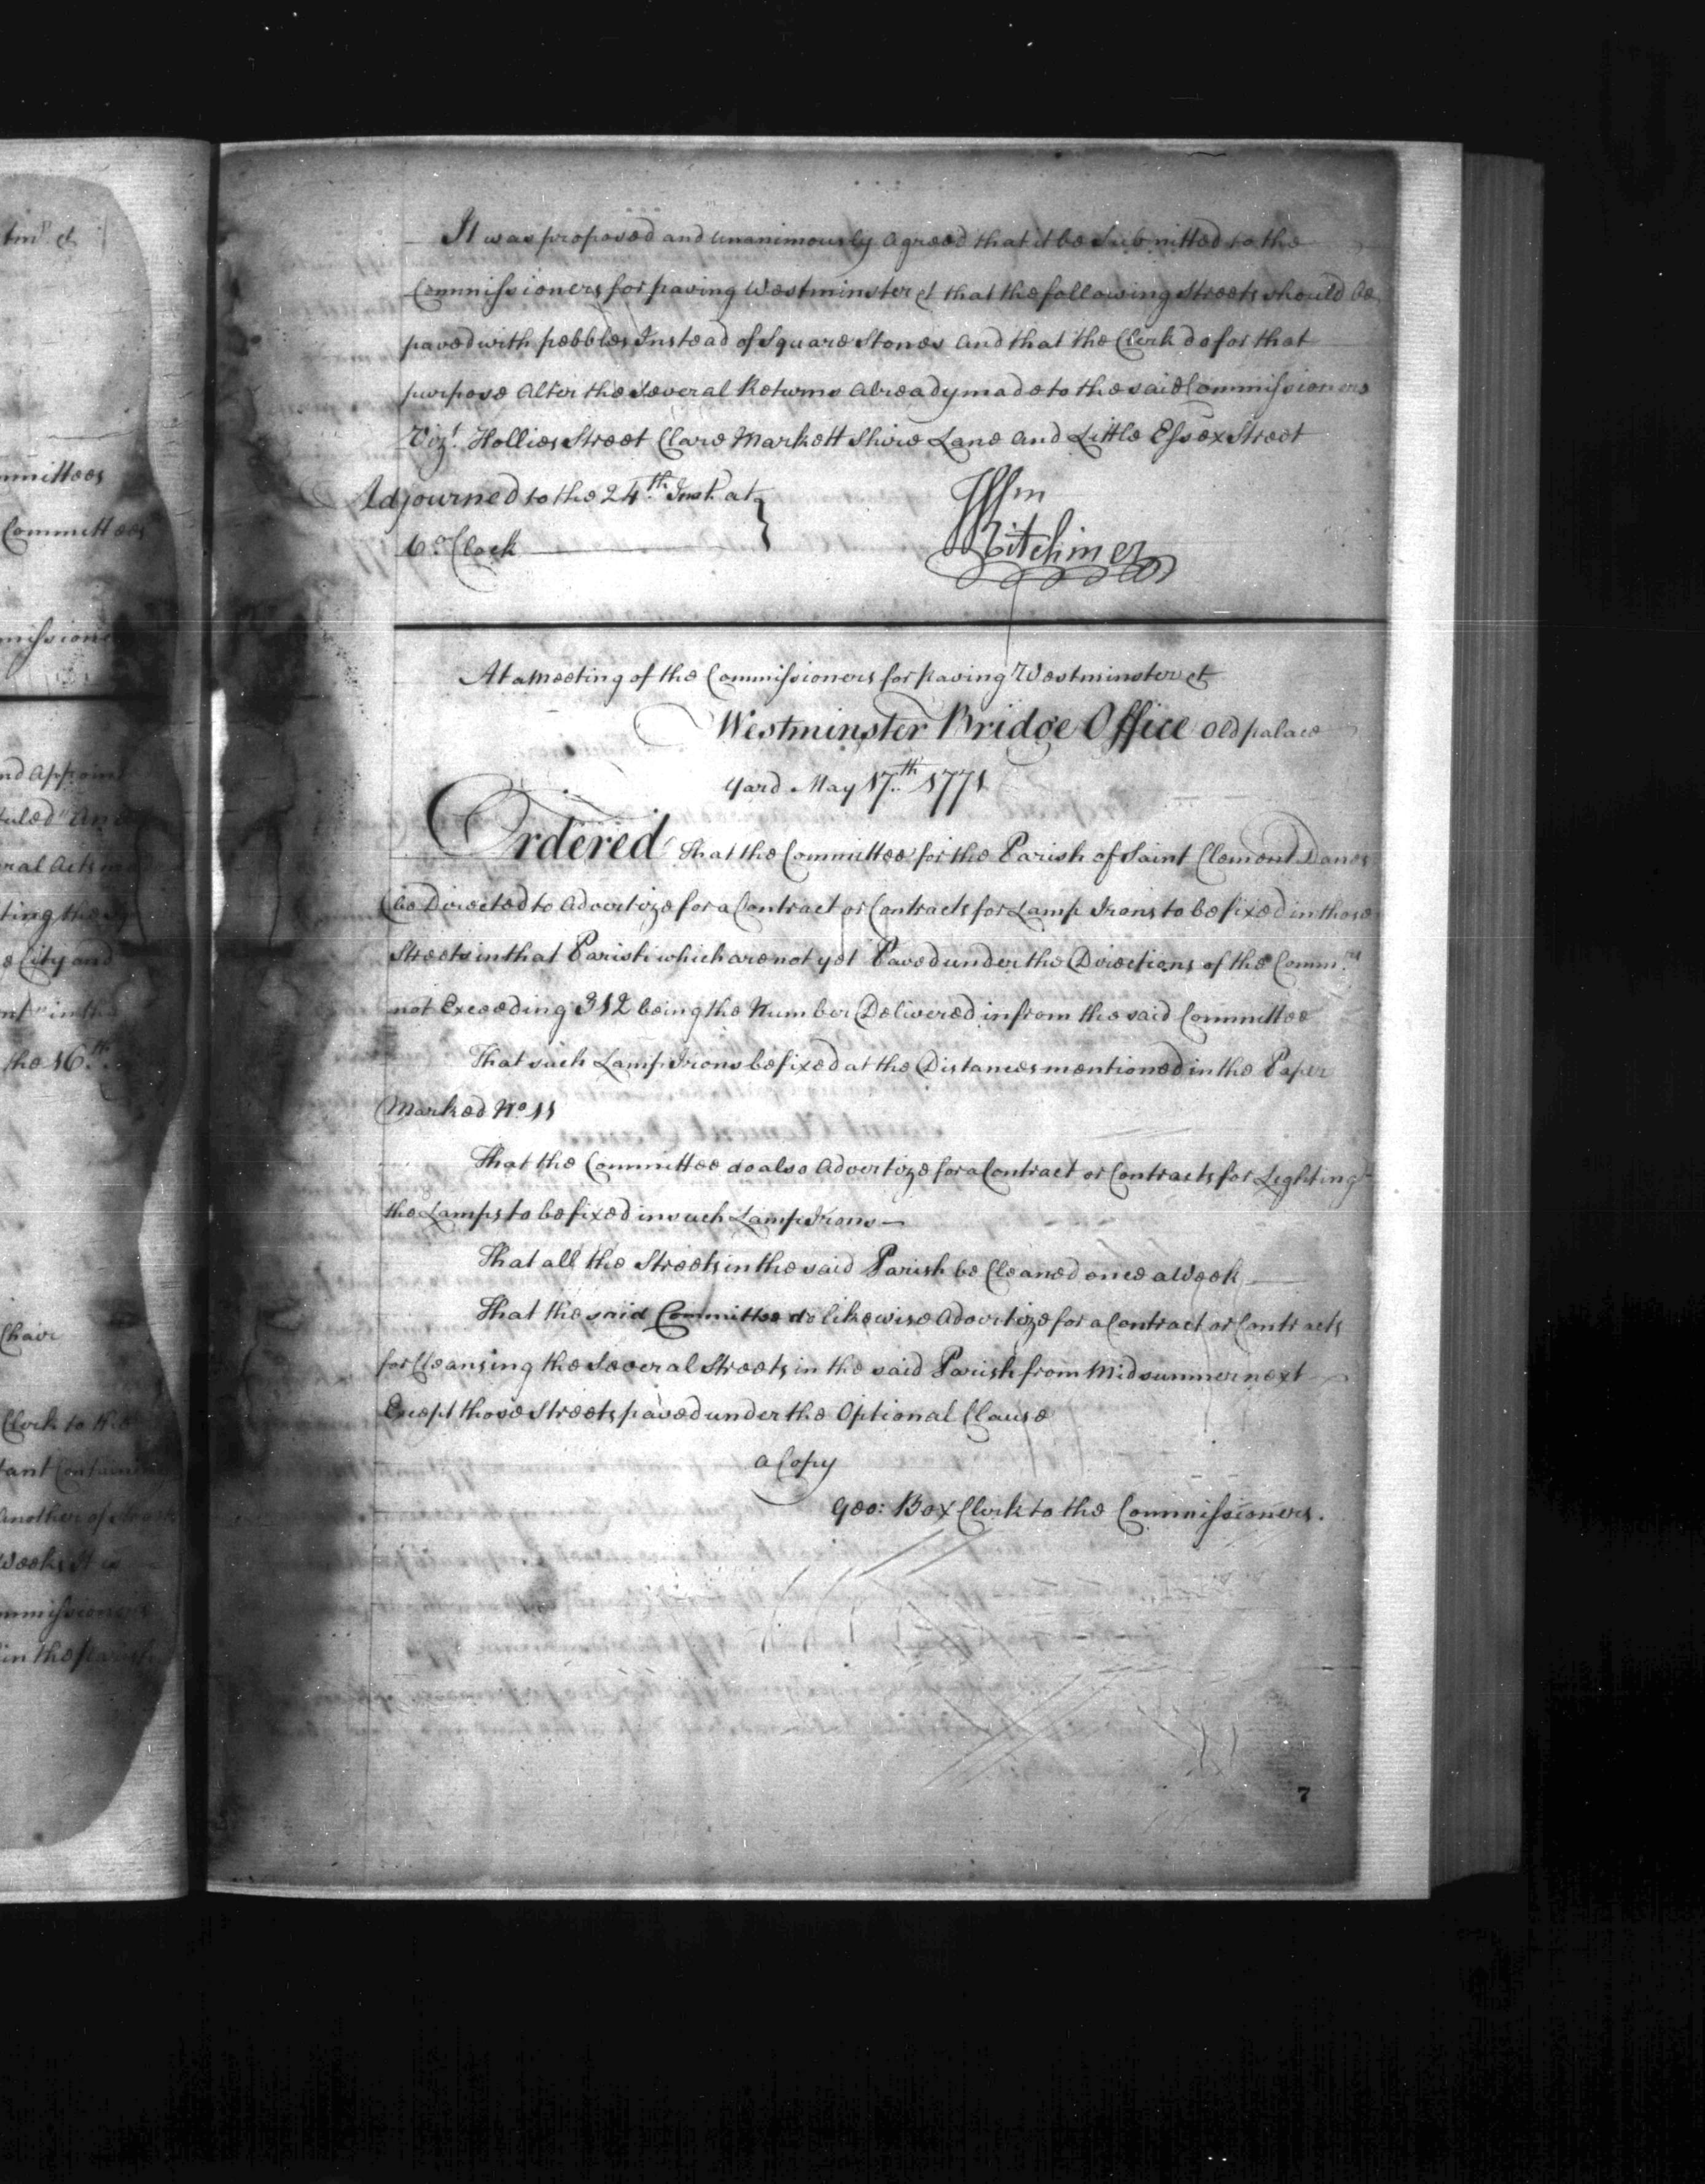 tm.^d &
mmittees
Committees
mmissione
nd Appoin
tuled "An
ral Acts
ting the
e City and
nt" in the
the 16.th
Chair
Clerk to the
tant Contain
Another of
Weeks It is
mmissioners
in the Parish
It was proposed and unanimously agreed that it be Submitted to the
Commissioners for paving Westminster &c that the following Streets should be
paved with pebbles Instead of Square Stones and that the Clerk do for that
purpose Alter the several Returns Already made to the said Commissioners
Viz.t Holles Street Clare Markett Shire Lane and Little Essex Street
Adjourned to the 24.th Inst. at
6 o'Clock
Wm
Kitchiner
At a Meeting of the Commissioners for paving Westminster &c
Westminster Bridge Office Old palace
Yard May 17.th 1771
Ordered That the Committee for the Parish of Saint Clement Danes
be Directed to Advertize for a Contract or Contracts for Lamp Irons to be fixed in those
Streets in that Parish which are not yet Paved under the Directions of the Comm.rs
not Exceeding 312 being the Number Delivered in from the said Committee
That such Lamp Irons be fixed at the Distances mentioned in the Paper
Marked No. 11
That the Committee do also Advertize for a Contract or Contracts for Lighting
the Lamps to be fixed in such Lamp Irons —
That all the Streets in the said Parish be Cleaned once a Week
That the said Committee do likewise Advertize for a Contract or Contracts
for Cleansing the Several Streets in the said Parish from Midsummer next
Except those Streets paved under the Optional Clause
a Copy
Geo: Box Clerk to the Commissioners.
7